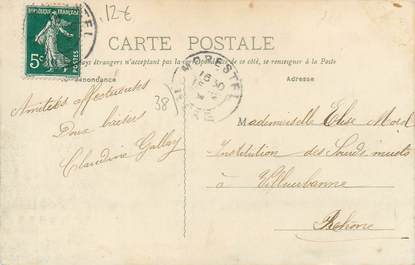 12€
RÉPUBLIQUE FRANÇAISE
5c
POSTES
CARTE POSTALE
pays étrangers n'acceptent pas la correspondance de ce côté, se renseigner à la Poste
Correspondance
Adresse
MORESTEL
38
Amitiés affectueuses
Doux baisers
Claudine Gallay
Mademoiselle Elise
Institution des Sourds muets
à Villeurbanne
Rhône